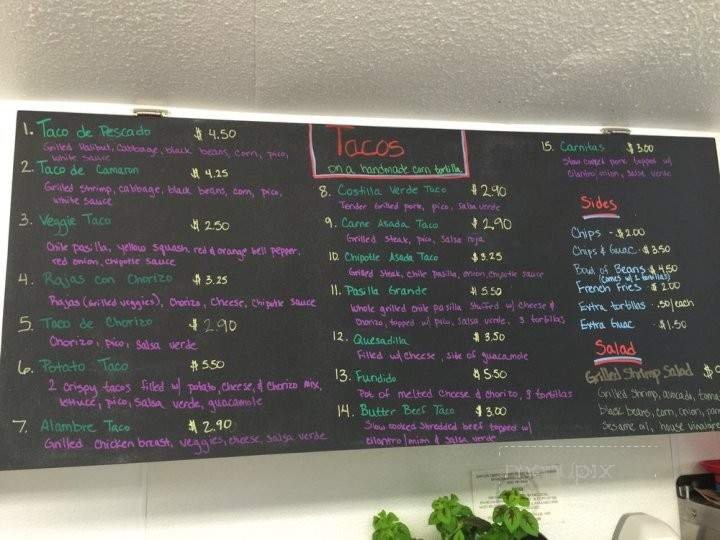 1. Taco de Pescado $4.50
Grilled Halibut, Cabbage, black beans, corn, pico,
white sauce
2. Taco de Camaron $4.25
Grilled shrimp, cabbage, black beans, corn, pico,
white sauce
3. Veggie Taco $2.50
Chile pasilla, yellow squash, red & orange bell pepper,
red onion, chipotle sauce
4. Rajas con Chorizo $3.25
Rajas (Grilled veggies), Chorizo, Cheese, Chipotle sauce
5. Taco de Chorizo $2.90
Chorizo, pico, salsa verde
6. Potato Taco $5.50
2 crispy tacos filled w/ potato, cheese, & chorizo mix,
lettuce, pico, salsa verde, guacamole
7. Alambre Taco $2.90
Grilled chicken breast, veggies, cheese, salsa verde
Tacos
on a handmade corn tortilla
8. Costilla Verde Taco $2.90
Tender Grilled pork, pico, salsa verde
9. Carne Asada Taco $2.90
Grilled steak, pico, salsa roja
10. Chipotle Asada Taco $3.25
Grilled steak, chile pasilla, onion, chipotle sauce
11. Pasilla Grande $5.50
Whole grilled chile pasilla stuffed w/ cheese &
chorizo, topped w/ pico, salsa verde, 3 tortillas
12. Quesadilla $3.50
Filled w/ cheese, side of guacamole
13. Fundido $5.50
Pot of melted cheese & chorizo, 3 tortillas
14. Butter Beef Taco $3.00
Slow cooked shredded beef topped w/
cilantro/onion & salsa verde
15. Carnitas $3.00
Slow cooked pork topped w/
cilantro/onion, salsa verde
Sides
Chips - $2.00
Chips & Guac - $3.50
Bowl of Beans $4.50
(comes w/ 2 tortillas)
French Fries - $2.00
Extra tortillas - .50/each
Extra Guac - $1.50
Salad
Grilled Shrimp Salad $
Grilled shrimp, avocado, toma
black beans, corn, onion,
Sesame oil, house vinaigre
menupix